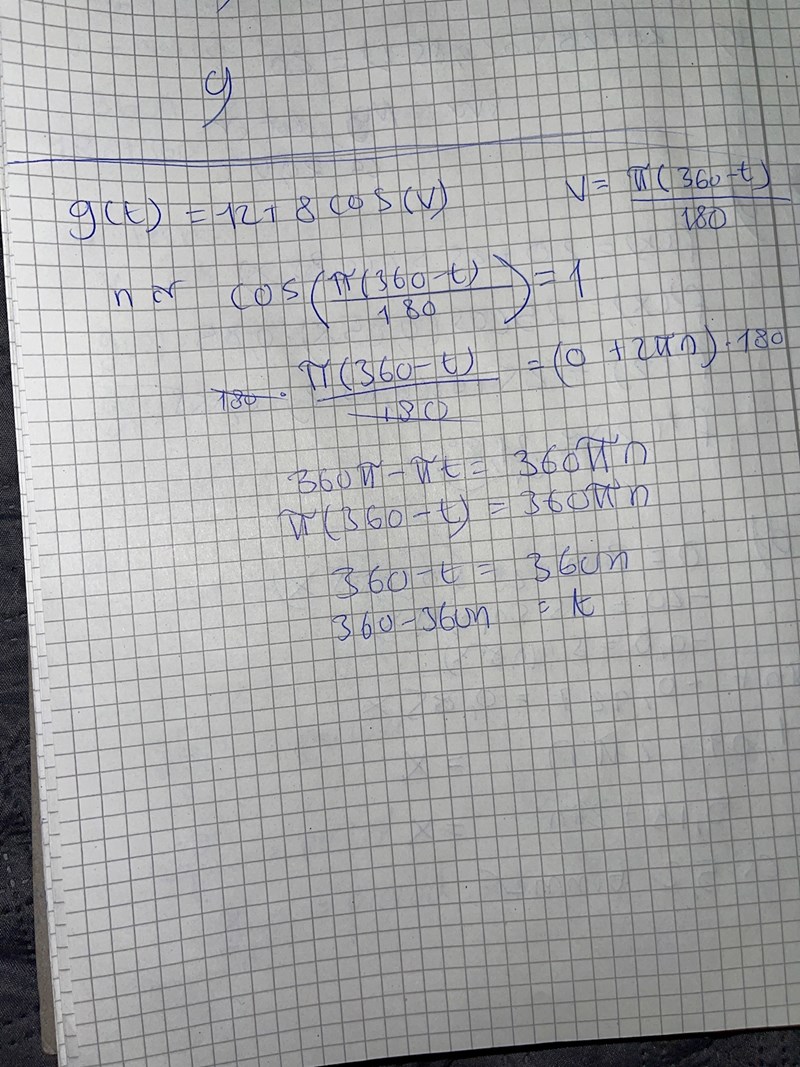 9
g(t) = 12 + 8 cos(v) v = π(360-t)/180
när cos(π(360-t)/180) = 1
180 · π(360-t)/180 = (0 + 2πn) · 180
360π - πt = 360πn
π(360-t) = 360πn
360-t = 360n
360-360n = t